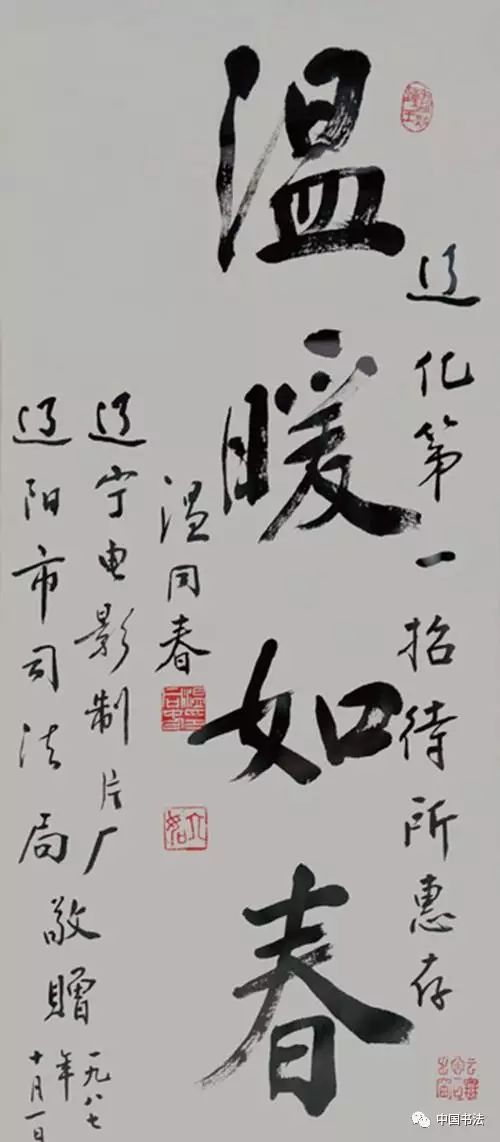 辽化第一招待所惠存
温暖如春
温同春
辽宁电影制片厂
辽阳市司法局
敬赠
一九八七年
十月一日
中国书法